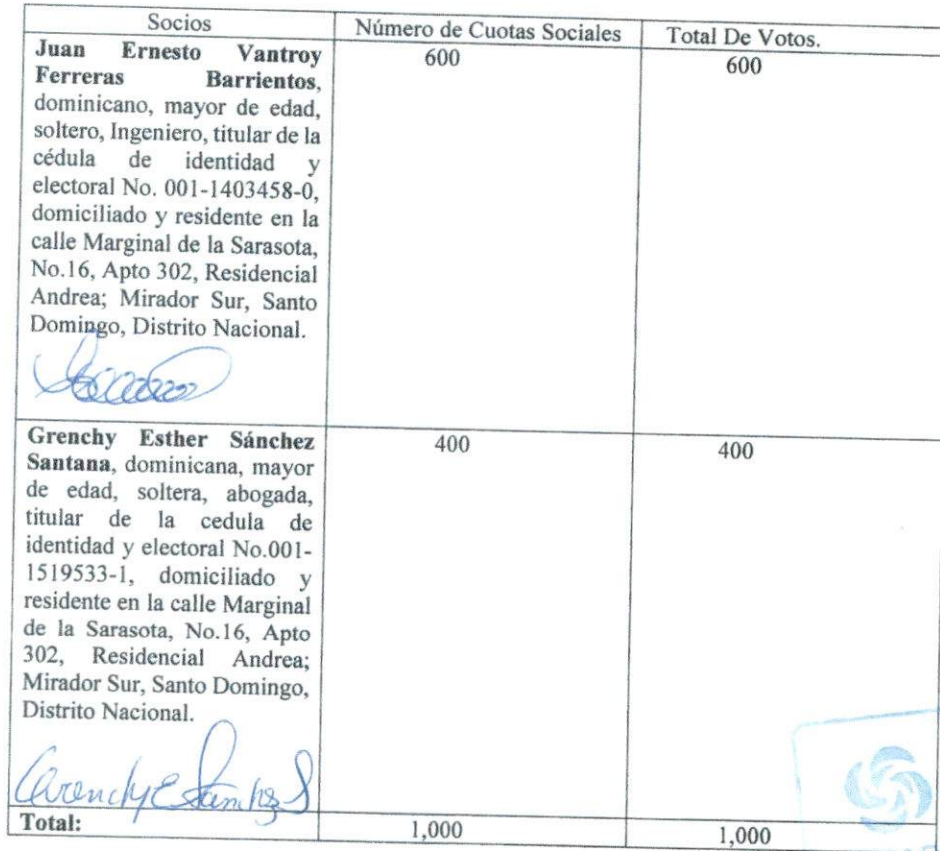 Socios Número de Cuotas Sociales Total De Votos.
Juan Ernesto Vantroy 600 600
Ferreras Barrientos,
dominicano, mayor de edad,
soltero, Ingeniero, titular de la
cédula de identidad y
electoral No. 001-1403458-0,
domiciliado y residente en la
calle Marginal de la Sarasota,
No.16, Apto 302, Residencial
Andrea; Mirador Sur, Santo
Domingo, Distrito Nacional.
Grenchy Esther Sánchez 400 400
Santana, dominicana, mayor
de edad, soltera, abogada,
titular de la cedula de
identidad y electoral No.001-
1519533-1, domiciliado y
residente en la calle Marginal
de la Sarasota, No.16, Apto
302, Residencial Andrea;
Mirador Sur, Santo Domingo,
Distrito Nacional.
Grenchy E Sánchez S
Total: 1,000 1,000